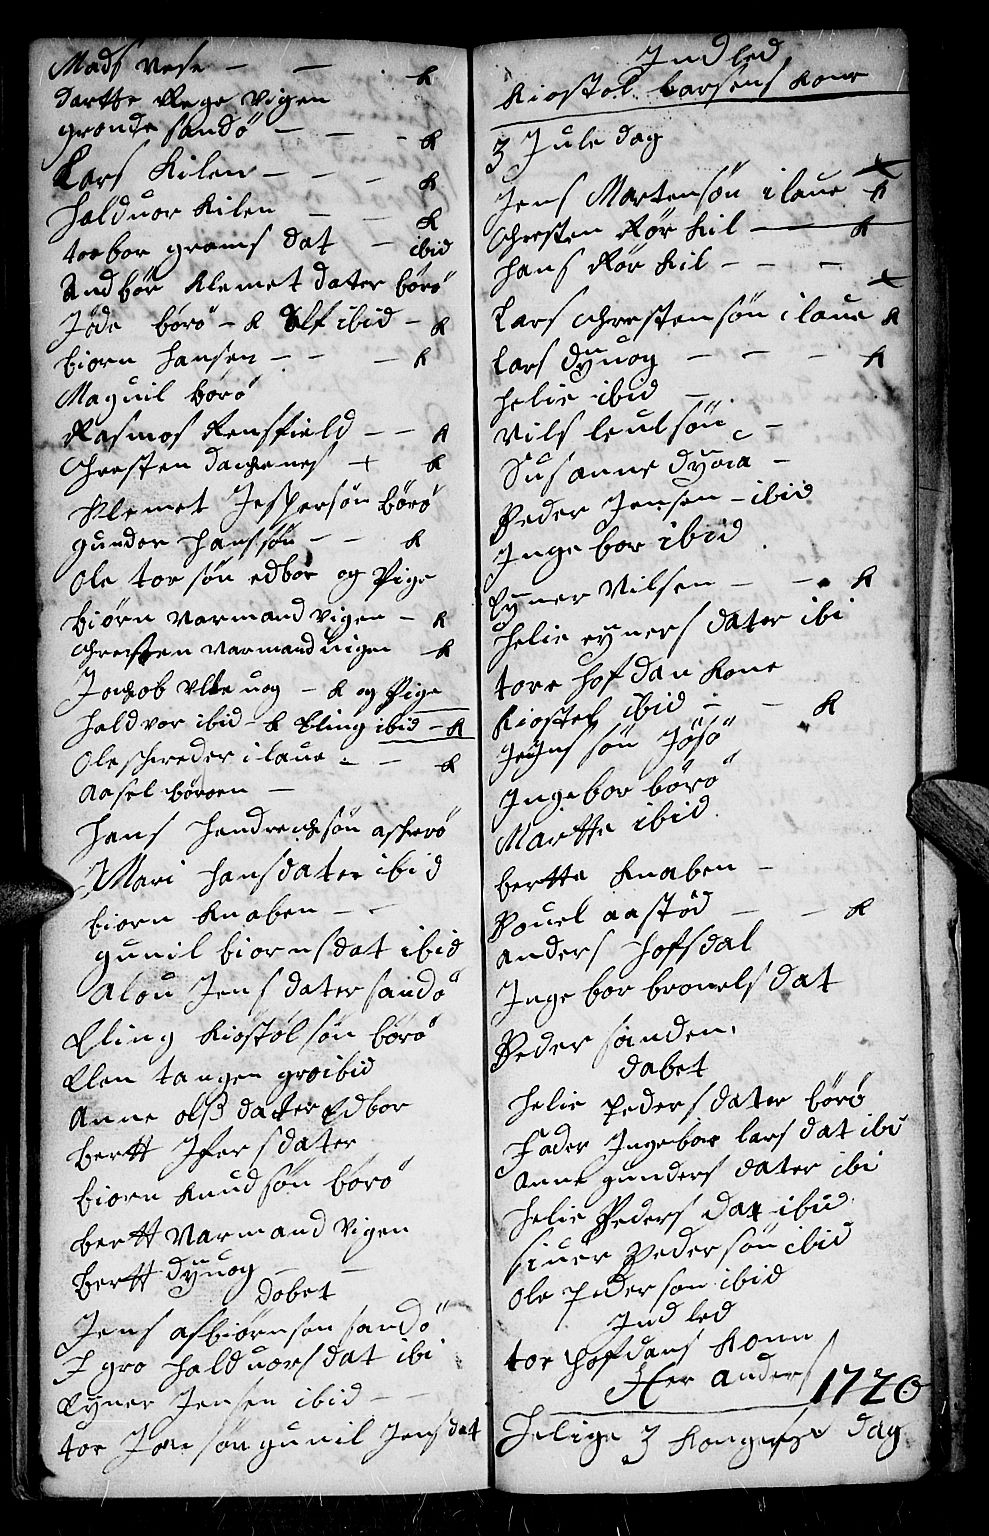 Mads Vese - - K
dortte Rege Vigen
gronde sandö - - - K
Lars Kilen - - - K
Halduor Kilen - - K
torbor groms dat - ibid
Andbör Klemet dater börö
Jöde börö - K Elf ibid - K
biorn Hansen - - - K
Maguil börö
Rasmos Rensfield - - K
Chresten + K
Klemet Jespersön börö
gundor Hanssön - - K
Ole tor sön edbor og Pige
biörn Varmand vigen - K
Chresten Varmand uigen K
Jackob uog - K og Pige
Haldvor ibid - K Eling ibid - K
Ole schreder i laue - - K
Aasel böroen -
Hans Hendrechsön askerö
Mari Hansdater ibid
biorn Knaben - -
gunil biornsdat ibid
Alou Jensdater sandö
Eling Kiostölsön börö
Elen tangen gro ibid
Anne olsdater Edbor
bertt Jfersdater
biorn Knudsön börö
bertt Varmand Vigen
bertt dyuog - -
döbet
Jens asbiörnsön sandö
F gro Halduorsdat ibi
Eyner Jensen ibid -
tor sön gunil Jensdat
Jndled
Kiostol Larsens Kone
3 Jule dag
Jens Martensön i laue K
Chresten Rör Kil - K
Hans Rör Kil - - -
Lars Chrestensön i laue K
Lars dyuog - - - K
Helie ibid -
Nils leulsön -
Susanne -
Peder Jensen - ibid
Jngebor ibid
Eyner Nilsen - - K
Helie eyners dater ibi
tore Hofdan Kone
Kiostel ibid - - K
sön Jösö
Jngebor börö
Maritte ibid
bertte Knaben -
Pouel aastöd - - K
Anders Hofsdal
Jngebor bronelsdat
Peder sanden
dabet
Helie Pedersdater börö
Fader Jngebor larsdat ibi
Anne gunders dater ibi
Helie Peders dat ibid
siuer Pedersön ibid
Ole Pederson ibid
Jndled
tor Hofdans Konn
Her Anders 1720
Helige 3 Konger dag